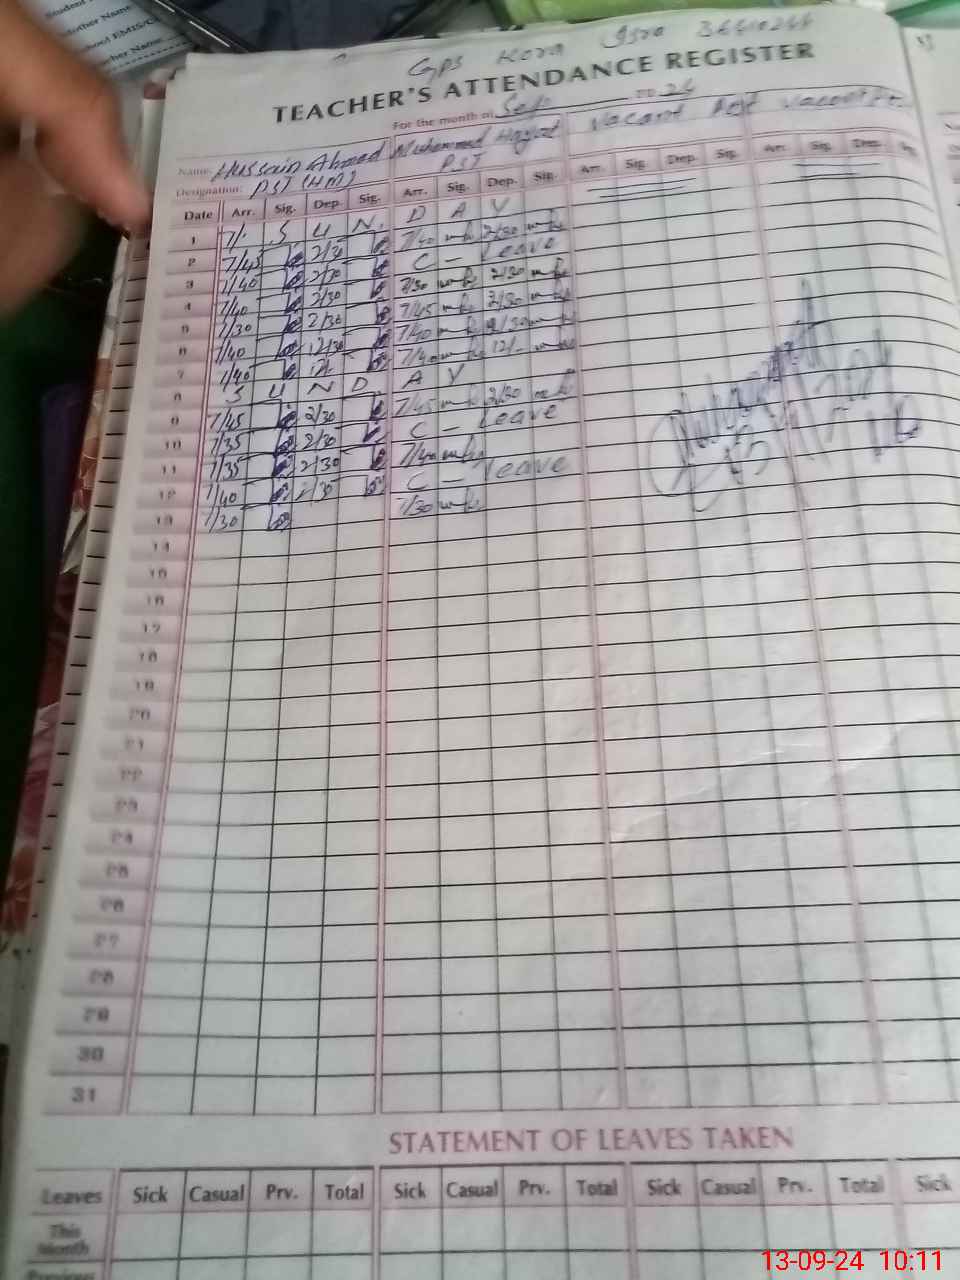 Student
Mother Name
School EMIS/C
Teacher Name
GPS Kora Isra
TEACHER'S ATTENDANCE REGISTER
For the month of Sep. 24
Name: Hussain Ahmad Muhammad Hayat Vacant Post Vacant
Designation: PST (HM) PST
Date Arr. Sig. Dep. Sig. Arr. Sig. Dep. Sig. Arr. Sig. Dep. Sig. Arr. Sig. Dep. Sig.
1 S U N D A Y
2 7/45 2/30 7/40 2/30
3 7/40 2/30 C - Leave
4 7/40 2/30 7/30 2/30
5 7/30 2/30 7/45 2/30
6 7/40 12/30 7/40 12/30
7 7/40 12/- 7/40 12/-
8 S U N D A Y
9 7/45 2/30 7/45 2/30
10 7/35 2/30 C - Leave
11 7/35 2/30 7/40
12 7/40 2/30 C - Leave
13 7/30 7/30
14
15
16
17
18
19
20
21
22
23
24
25
26
27
28
29
30
31
STATEMENT OF LEAVES TAKEN
Leaves Sick Casual Prv. Total Sick Casual Prv. Total Sick Casual Prv. Total Sick
This
Month
Previous
13-09-24 10:11